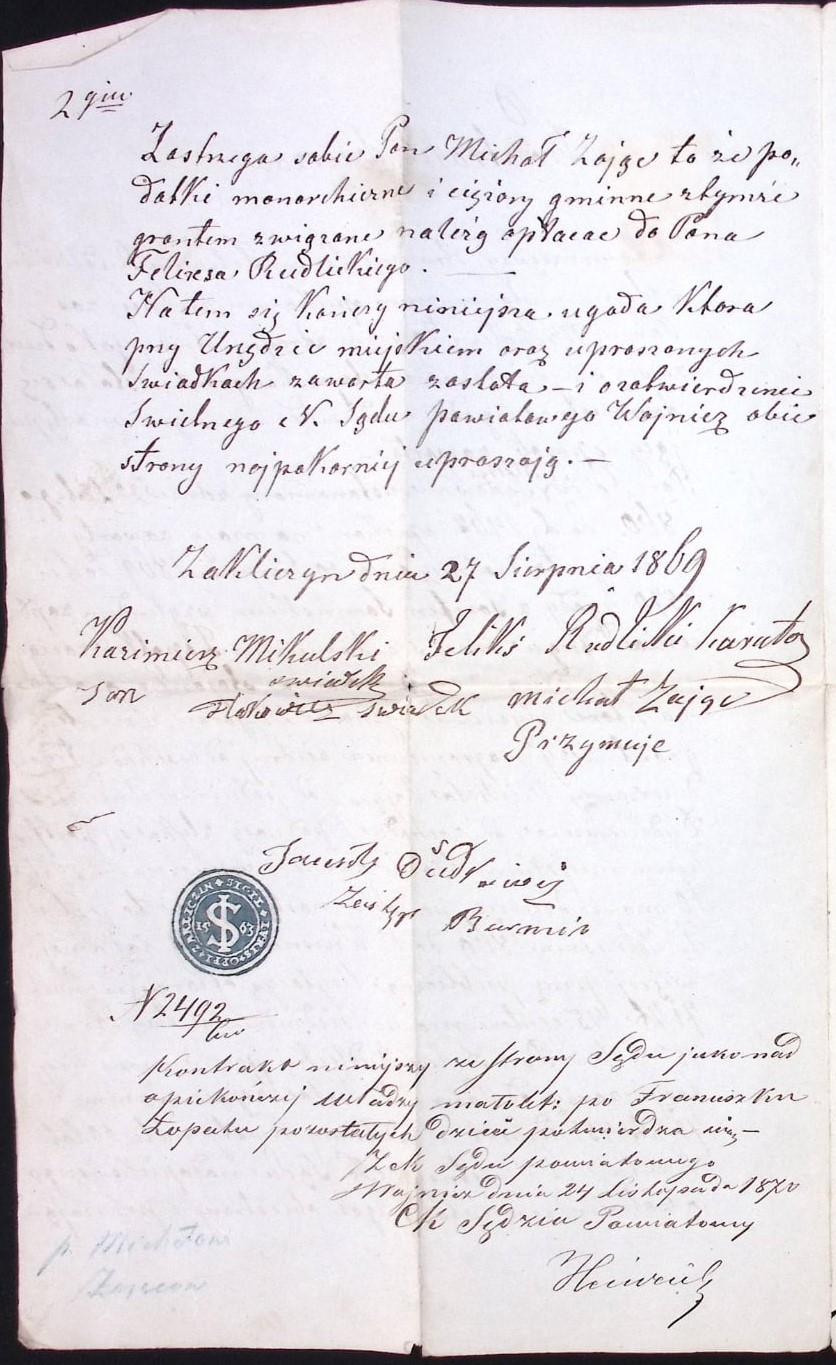 2gim
Zastrzega sobie Pan Michał Zając to że po„
datki monarchiczne i ciężary gminne ztymże
grontem związane należą opłacac do Pana
Felixsa Rudlickiego. —
Na tem się kończy niniejsza ugoda ktora
przy Urzędzie miejskiem oraz uproszonych
swiadkach zawarta zostata – i ozatwierdzenie
Swietnego c.k. Sądu powiatowego Wojnicz obie
strony najpokorniej upraszają. —
Zakliczyn dnia 27 Sierpnia 1869
Kazimierz Mikulski Feliks Rudlicki kurator
swiadek
Jan swiadek Michał Zając
Przymuje
SIGIL
15 63
N 2492
Kontrakt niniejszy ze strony Sądu jako nad
opiekończej władzy małolet: po Franciszku
Łopatu pozostałych dzieci potwierdza się —
Z ck Sądu powiatowego
Wojnicz dnia 24 listopada 1870
Ck Sędzia Powiatowy
p. Michałowi
Zającowi